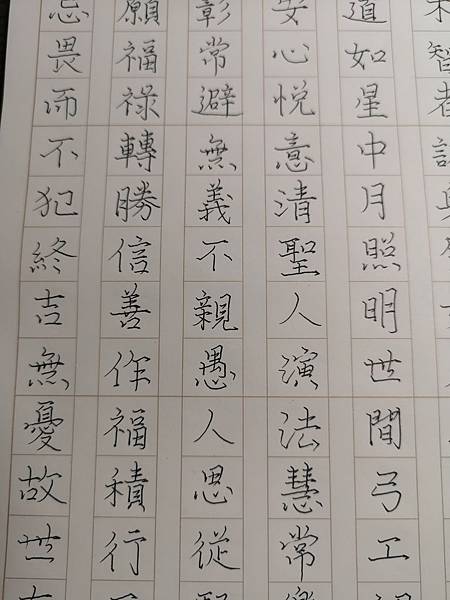 木智者
道如星中月照明世間弓工
安心悅意清聖人演法慧常
彰常避無義不親愚人思從
願福祿轉勝信善作福積行
忌畏而不犯終吉無憂故世